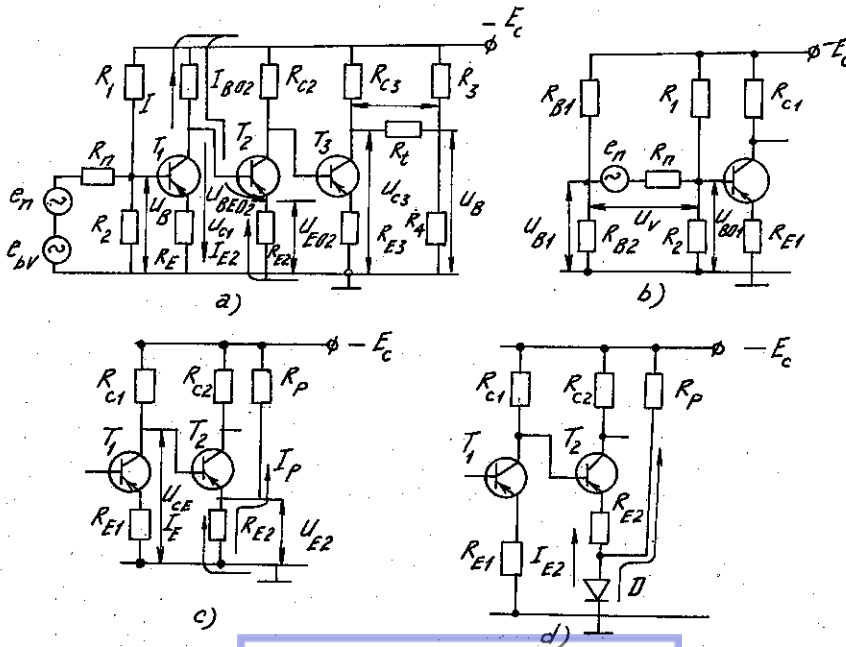 − E_c
R_1
I
I_B02
R_C2
R_C3
R_3
T_1
T_2
T_3
R_n
R_t
e_n
U_B
U_BE02
U_C3
U_B
R_2
U_C1
U_E02
R_4
e_bV
R_E
I_E2
R_E2
R_E3
a)
− E_c
R_B1
R_1
R_C1
e_n
R_n
U_B1
U_V
U_B01
R_B2
R_2
R_E1
b)
− E_c
R_C1
R_C2
R_P
T_1
T_2
I_P
U_CE
R_E1
I_E
R_E2
U_E2
c)
− E_c
R_C1
R_C2
R_P
T_1
T_2
R_E2
R_E1
I_E2
D
d)